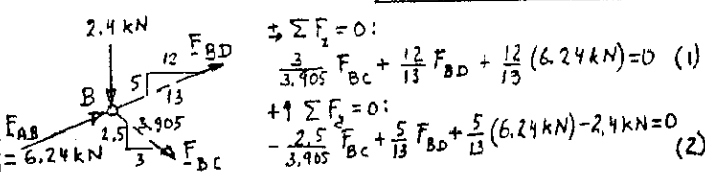 2.4 kN
12
F_BD
5
13
B
F_AB
= 6.24 kN
2.5
3.905
3
F_BC
±→ Σ F_x = 0:
3/3.905 F_BC + 12/13 F_BD + 12/13 (6.24 kN) = 0 (1)
+↑ Σ F_y = 0:
- 2.5/3.905 F_BC + 5/13 F_BD + 5/13 (6.24 kN) - 2.4 kN = 0 (2)